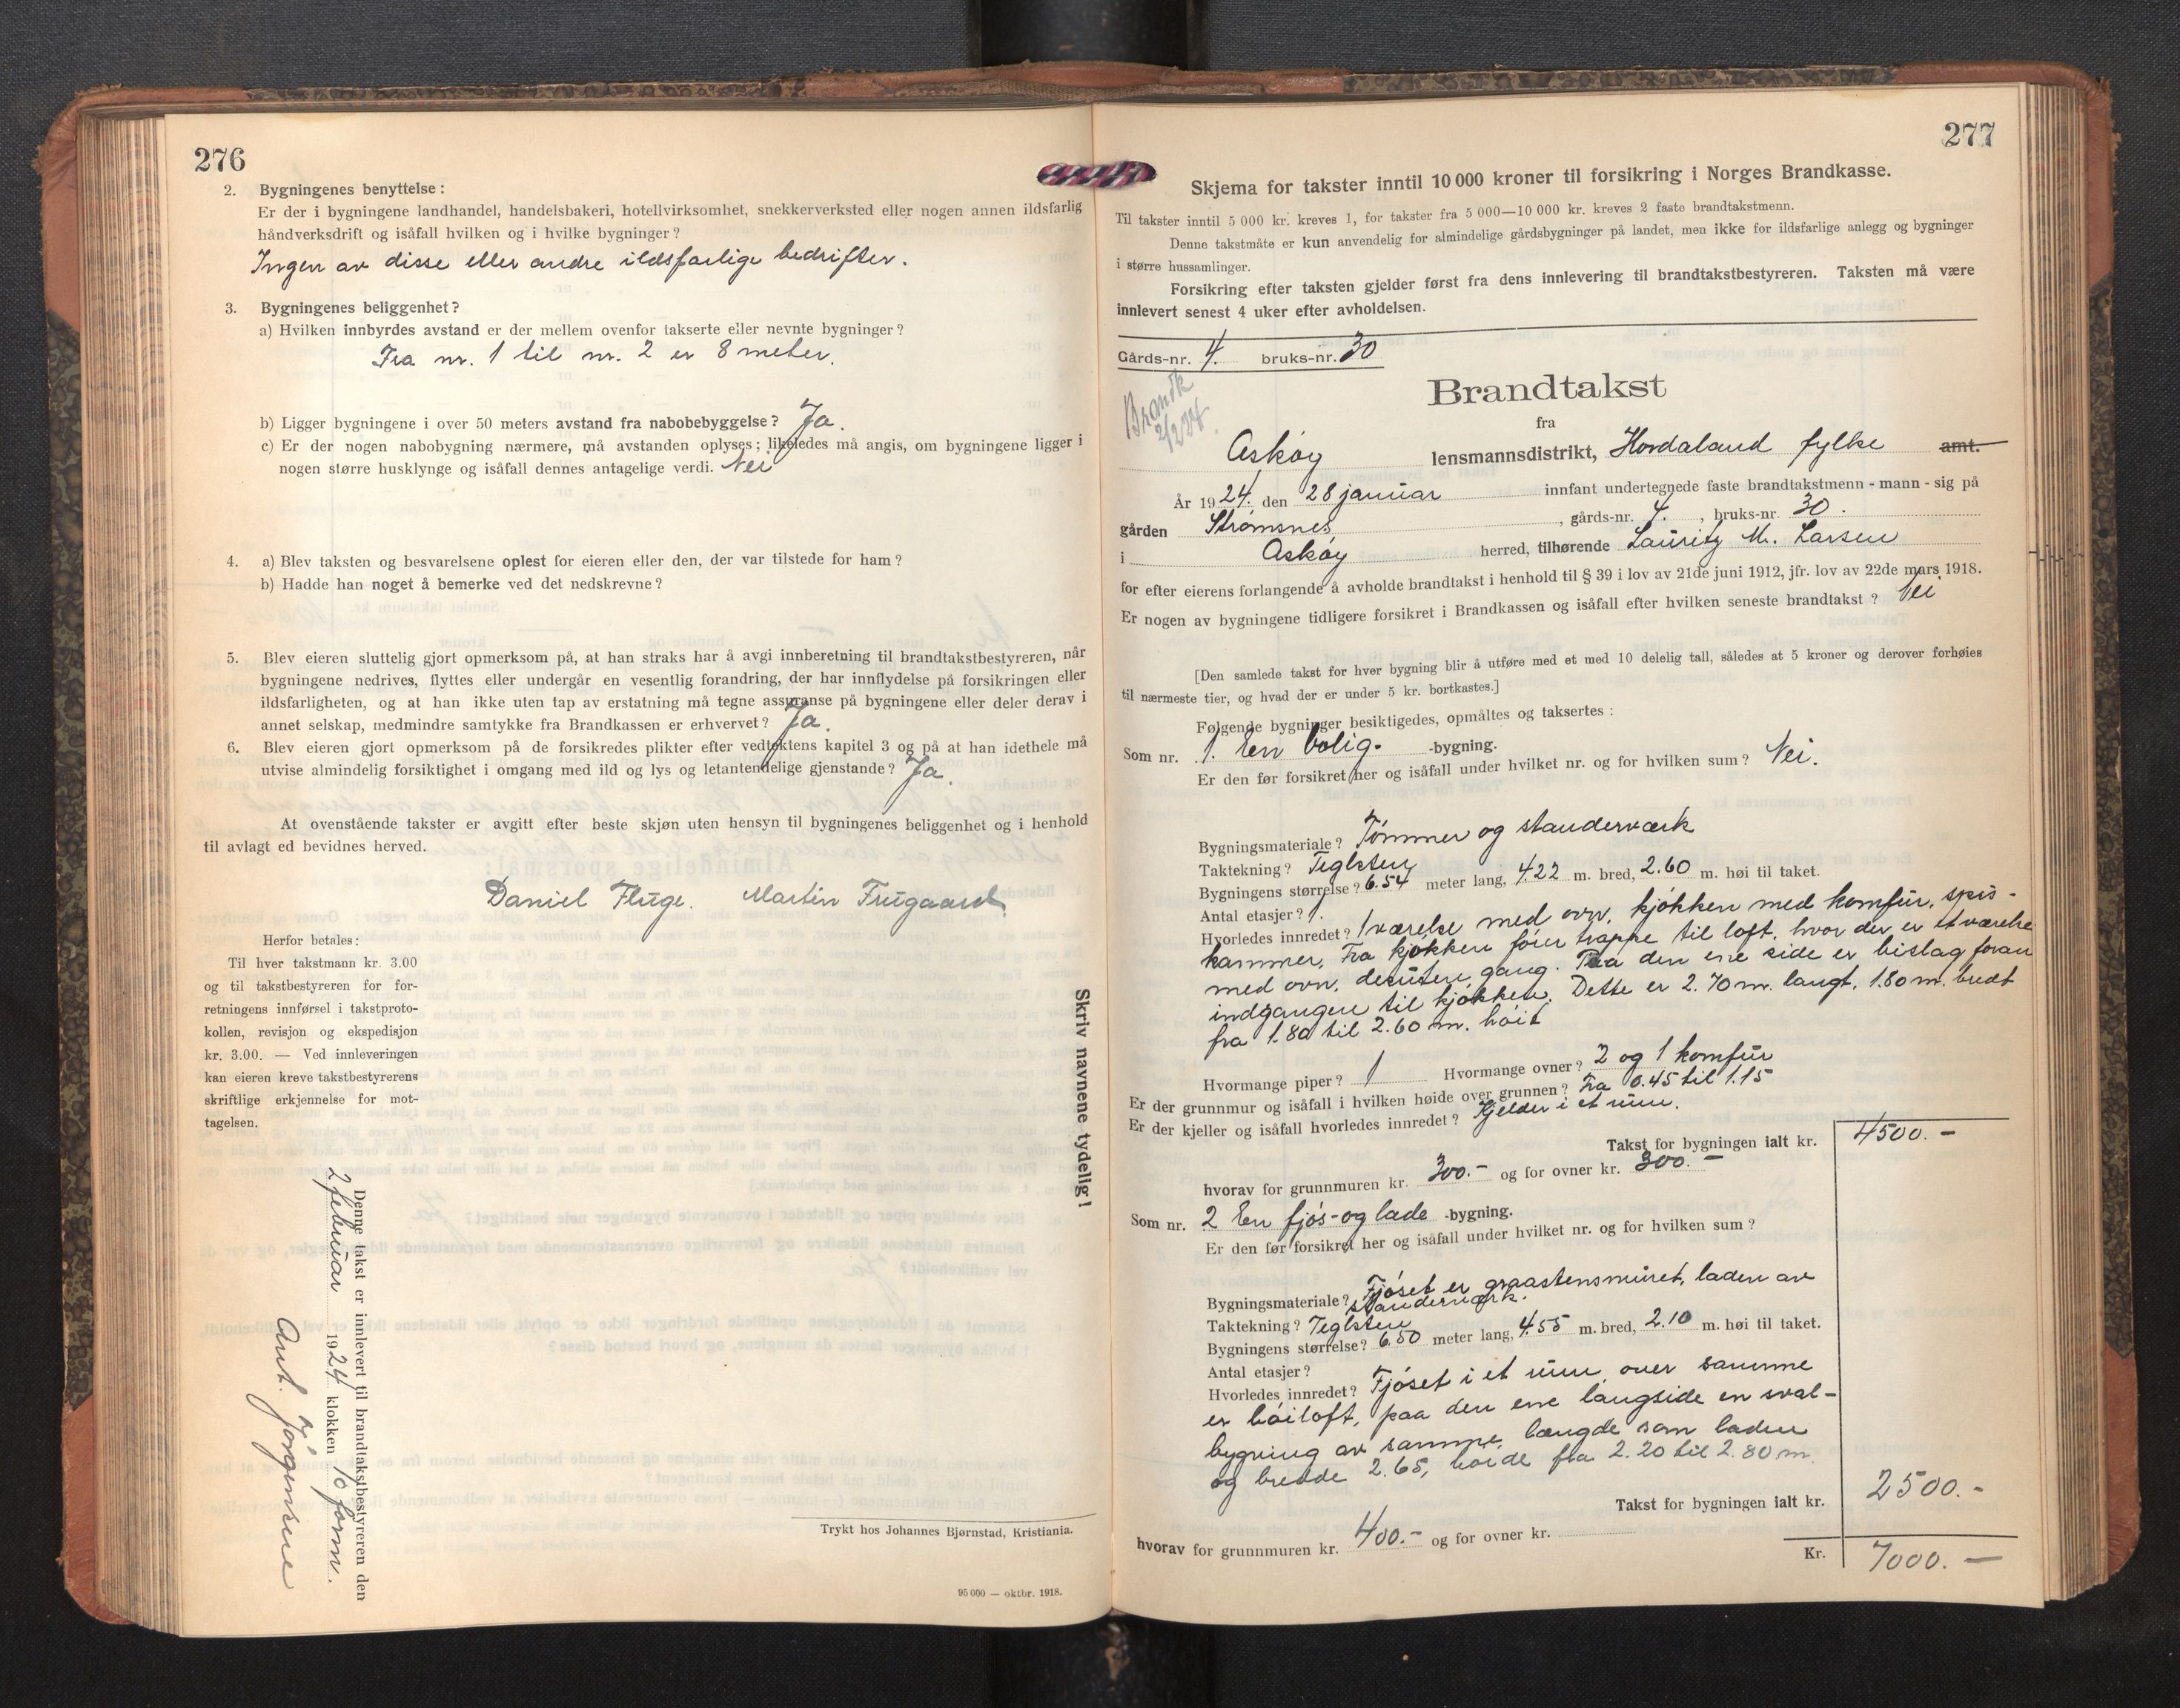 276
2. Bygningenes benyttelse:
Er der i bygningene landhandel, handelsbakeri, hotellvirksomhet, snekkerverksted eller nogen annen ildsfarlig
håndverksdrift og isåfall hvilken og i hvilke bygninger?
Ingen av disse eller andre ildsfarlige bedrifter.
3. Bygningenes beliggenhet?
a) Hvilken innbyrdes avstand er der mellem ovenfor takserte eller nevnte bygninger?
Fra nr. 1 til nr. 2 er 8 meter.
b) Ligger bygningene i over 50 meters avstand fra nabobebyggelse? Ja.
c) Er der nogen nabobygning nærmere, må avstanden oplyses; likeledes må angis, om bygningene ligger i
nogen større husklynge og isåfall dennes antagelige verdi. Nei
4. a) Blev taksten og besvarelsene oplest for eieren eller den, der var tilstede for ham?
b) Hadde han noget å bemerke ved det nedskrevne?
5. Blev eieren sluttelig gjort opmerksom på, at han straks har å avgi innberetning til brandtakstbestyreren, når
bygningene nedrives, flyttes eller undergår en vesentlig forandring, der har innflydelse på forsikringen eller
ildsfarligheten, og at han ikke uten tap av erstatning må tegne assuranse på bygningene eller deler derav i
annet selskap, medmindre samtykke fra Brandkassen er erhvervet? Ja.
6. Blev eieren gjort opmerksom på de forsikredes plikter efter vedtektens kapitel 3 og på at han idethele må
utvise almindelig forsiktighet i omgang med ild og lys og letantendelige gjenstande? Ja.
At ovenstående takster er avgitt efter beste skjøn uten hensyn til bygningenes beliggenhet og i henhold
til avlagt ed bevidnes herved.
Daniel Fluge. Martin Frugaard
Herfor betales:
Til hver takstmann kr. 3.00
og til takstbestyreren for for-
retningens innførsel i takstproto-
kollen, revisjon og ekspedisjon
kr. 3.00. — Ved innleveringen
kan eieren kreve takstbestyrerens
skriftlige erkjennelse for mot-
tagelsen.
Skriv navnene tydelig!
Denne takst er innlevert til brandtakstbestyreren den
2 februar 1924 klokken 10 form.
Ant. Jørgensen
Trykt hos Johannes Bjørnstad, Kristiania.
95 000 — oktbr. 1918.
277
Skjema for takster inntil 10 000 kroner til forsikring i Norges Brandkasse.
Til takster inntil 5 000 kr. kreves 1, for takster fra 5 000—10 000 kr. kreves 2 faste brandtakstmenn.
Denne takstmåte er kun anvendelig for almindelige gårdsbygninger på landet, men ikke for ildsfarlige anlegg og bygninger
i større hussamlinger.
Forsikring efter taksten gjelder først fra dens innlevering til brandtakstbestyreren. Taksten må være
innlevert senest 4 uker efter avholdelsen.
Gårds-nr. 4. bruks-nr. 30
Brandk
2/2 24.
Brandtakst
fra
Askøy lensmannsdistrikt, Hordaland fylke amt.
År 1924. den 28 januar innfant undertegnede faste brandtakstmenn - mann - sig på
gården Strømsnes, gårds-nr. 4., bruks-nr. 30.
i Askøy herred, tilhørende Lauritz M. Larsen
for efter eierens forlangende å avholde brandtakst i henhold til § 39 i lov av 21de juni 1912, jfr. lov av 22de mars 1918.
Er nogen av bygningene tidligere forsikret i Brandkassen og isåfall efter hvilken seneste brandtakst? Nei
[Den samlede takst for hver bygning blir å utføre med et med 10 delelig tall, således at 5 kroner og derover forhøies
til nærmeste tier, og hvad der er under 5 kr. bortkastes.]
Følgende bygninger besiktigedes, opmåltes og taksertes:
Som nr. 1. En bolig- -bygning.
Er den før forsikret her og isåfall under hvilket nr. og for hvilken sum? Nei.
Bygningsmateriale? Tømmer og standerværk
Taktekning? Teglsten
Bygningens størrelse? 6.54 meter lang, 4.22 m. bred, 2.60 m. høi til taket.
Antal etasjer? 1.
Hvorledes innredet? 1 værelse med ovn, kjøkken med komfur, spis-
kammer. Fra kjøkken fører trappe til loft, hvor der er et værelse
med ovn, desuten gang. Paa den ene side er bislag foran
indgangen til kjøkken. Dette er 2.70 m. langt, 1.80 m. bredt
fra 1.80 til 2.60 m. høit
Hvormange piper? 1 Hvormange ovner? 2 og 1 komfur
Er der grunnmur og isåfall i hvilken høide over grunnen? Fra 0.45 til 1.15
Er der kjeller og isåfall hvorledes innredet? Kjelder i et rum.
Takst for bygningen ialt kr. 4500.-
hvorav for grunnmuren kr. 300.- og for ovner kr. 300.-
Som nr. 2 En fjøs- og lade -bygning.
Er den før forsikret her og isåfall under hvilket nr. og for hvilken sum?
Bygningsmateriale? Fjøset er graastensmuret, laden av
standerværk.
Taktekning? Teglsten
Bygningens størrelse? 6.50 meter lang, 4.55 m. bred, 2.10 m. høi til taket.
Antal etasjer?
Hvorledes innredet? Fjøset i et rum, over samme
er høiloft, paa den ene langside en sval-
bygning av samme længde som laden
og bredde 2.65, høide fra 2.20 til 2.80 m.
Takst for bygningen ialt kr. 2500.-
hvorav for grunnmuren kr. 400.- og for ovner kr.
Kr. 7000.-